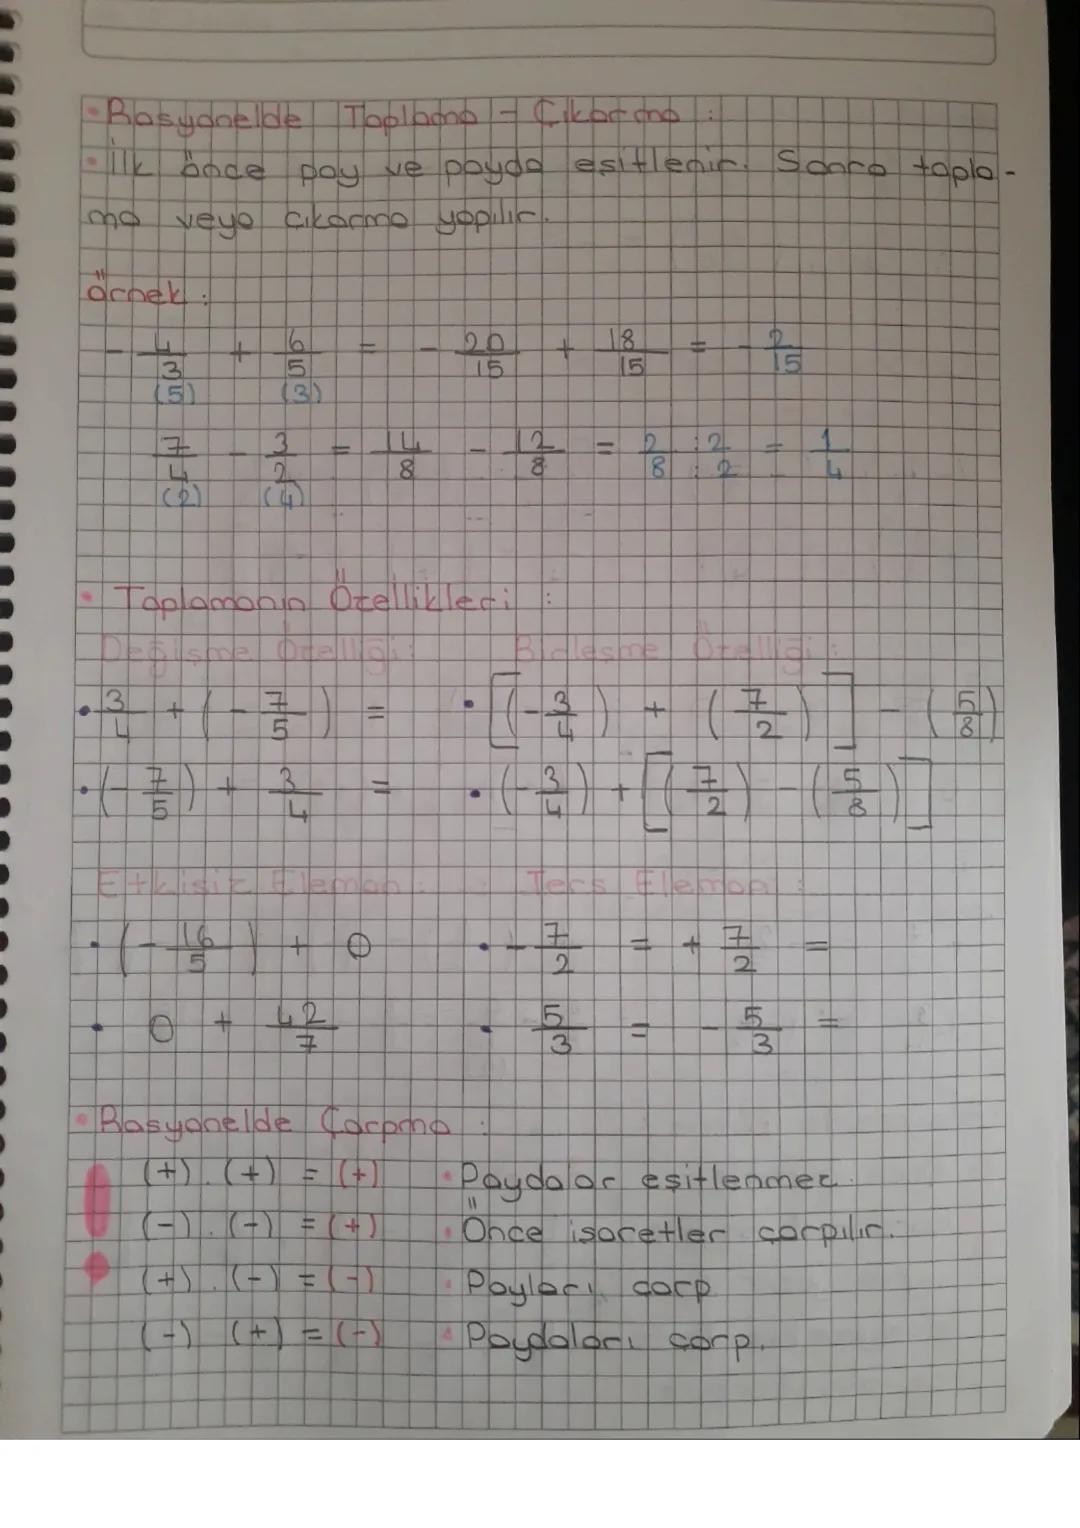 • Rasyonelde Toplama - Çıkarma :
• İlk önce pay ve payda eşitlenir. Sonra topla-
ma veya çıkarma yapılır.
Örnek :
- 4/3 + 6/5 = - 20/15 + 18/15 = - 2/15
(5) (3)
7/4 - 3/2 = 14/8 - 12/8 = 2/8 : 2/2 = 1/4
(2) (4)
• Toplamanın Özellikleri :
Değişme Özelliği: Birleşme Özelliği :
• 3/4 + (- 7/5) = • [(- 3/4) + (7/2)] - (5/8)
• (- 7/5) + 3/4 = • (- 3/4) + [(7/2) - (5/8)]
Etkisiz Eleman : Ters Eleman :
• (- 16/5) + 0 • - 7/2 = + 7/2 =
• 0 + 42/7 • 5/3 = - 5/3 =
• Rasyonelde Çarpma :
(+) . (+) = (+) • Paydalar eşitlenmez.
(-) . (-) = (+) • Önce işaretler çarpılır.
(+) . (-) = (-) • Payları çarp
(-) (+) = (-) • Paydaları çarp.